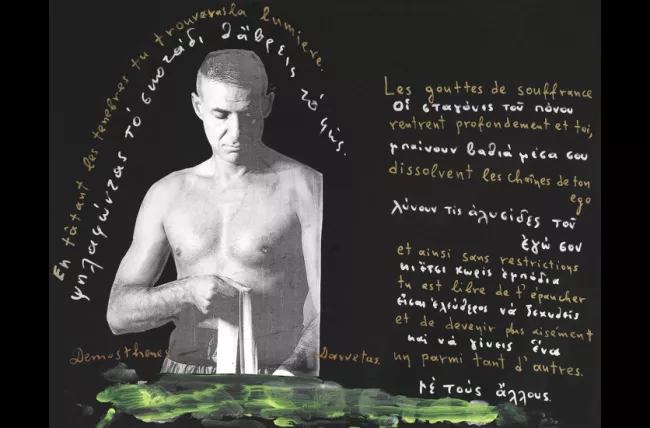 En tâtant les ténèbres tu trouveras la lumière.
ψηλαφώντας τό σκοτάδι θἄβρεις τό φῶς.
Les gouttes de souffrance
Οἱ σταγόνες τοῦ πόνου
rentrent profondement et toi,
μπαίνουν βαθιά μέσα σου
dissolvent les chaînes de ton
ego
λύνουν τίς ἁλυσίδες τοῦ
ἐγώ σου
et ainsi sans restrictions
κι ἔτσι χωρίς ἐμπόδια
tu est libre de t'épancher
εἶσαι ἐλεύθερος νά ξεχυθεῖς
et de devenir plus aisément
καί νά γίνεις ἕνα
un parmi tant d'autres.
μέ τούς ἄλλους.
Demosthenes Davvetas.